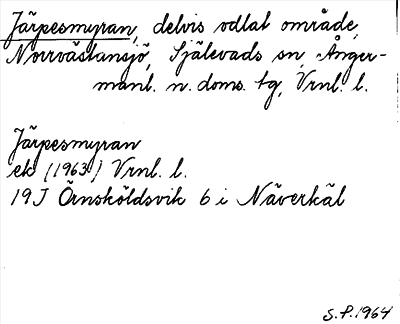 Järpesmyran, delvis odlat område,
Norrvästansjö, Själevads sn, Ånger-
manl. n. doms. tg, Vrnl. l.
Järpesmyran
ek (1963) Vrnl. l.
19J Örnsköldsvik 6 i Näverkäl
S.P. 1964